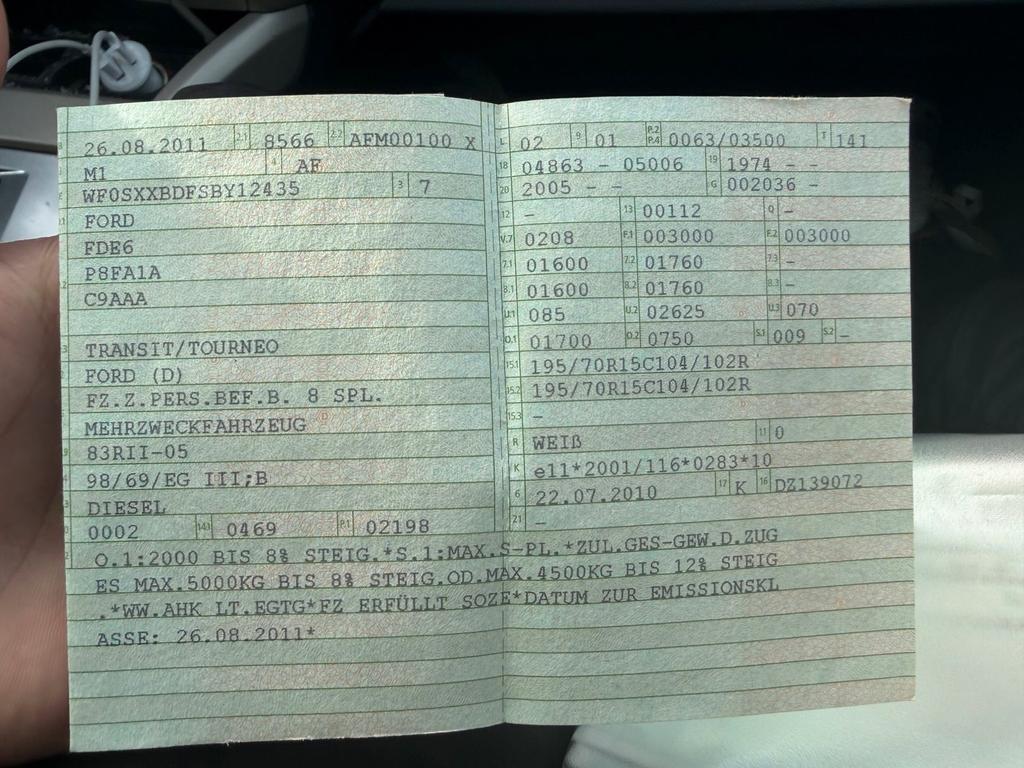 26.08.2011 2.1 8566 2.2 AFM00100 X
M1 4 AF
WF0SXXBDFSBY12435 3 7
FORD
FDE6
P8FA1A
C9AAA
TRANSIT/TOURNEO
FORD (D)
FZ.Z.PERS.BEF.B. 8 SPL.
MEHRZWECKFAHRZEUG
83RII-05
98/69/EG III;B
DIESEL
0002 14.1 0469 P.1 02198
L 02 9 01 P.2 P.4 0063/03500 T 141
18 04863 - 05006 19 1974 - -
20 2005 - - G 002036 -
12 - 13 00112 Q -
V.7 0208 F.1 003000 F.2 003000
7.1 01600 7.2 01760 7.3 -
8.1 01600 8.2 01760 8.3 -
U.1 085 U.2 02625 U.3 070
O.1 01700 O.2 0750 S.1 009 S.2 -
15.1 195/70R15C104/102R
15.2 195/70R15C104/102R
15.3 -
R WEIß 11 0
K e11*2001/116*0283*10
6 22.07.2010 17 K 16 DZ139072
21 -
O.1:2000 BIS 8% STEIG.*S.1:MAX.S-PL.*ZUL.GES-GEW.D.ZUG
ES MAX.5000KG BIS 8% STEIG.OD.MAX.4500KG BIS 12% STEIG
.*WW.AHK LT.EGTG*FZ ERFÜLLT SOZE*DATUM ZUR EMISSIONSKL
ASSE: 26.08.2011*